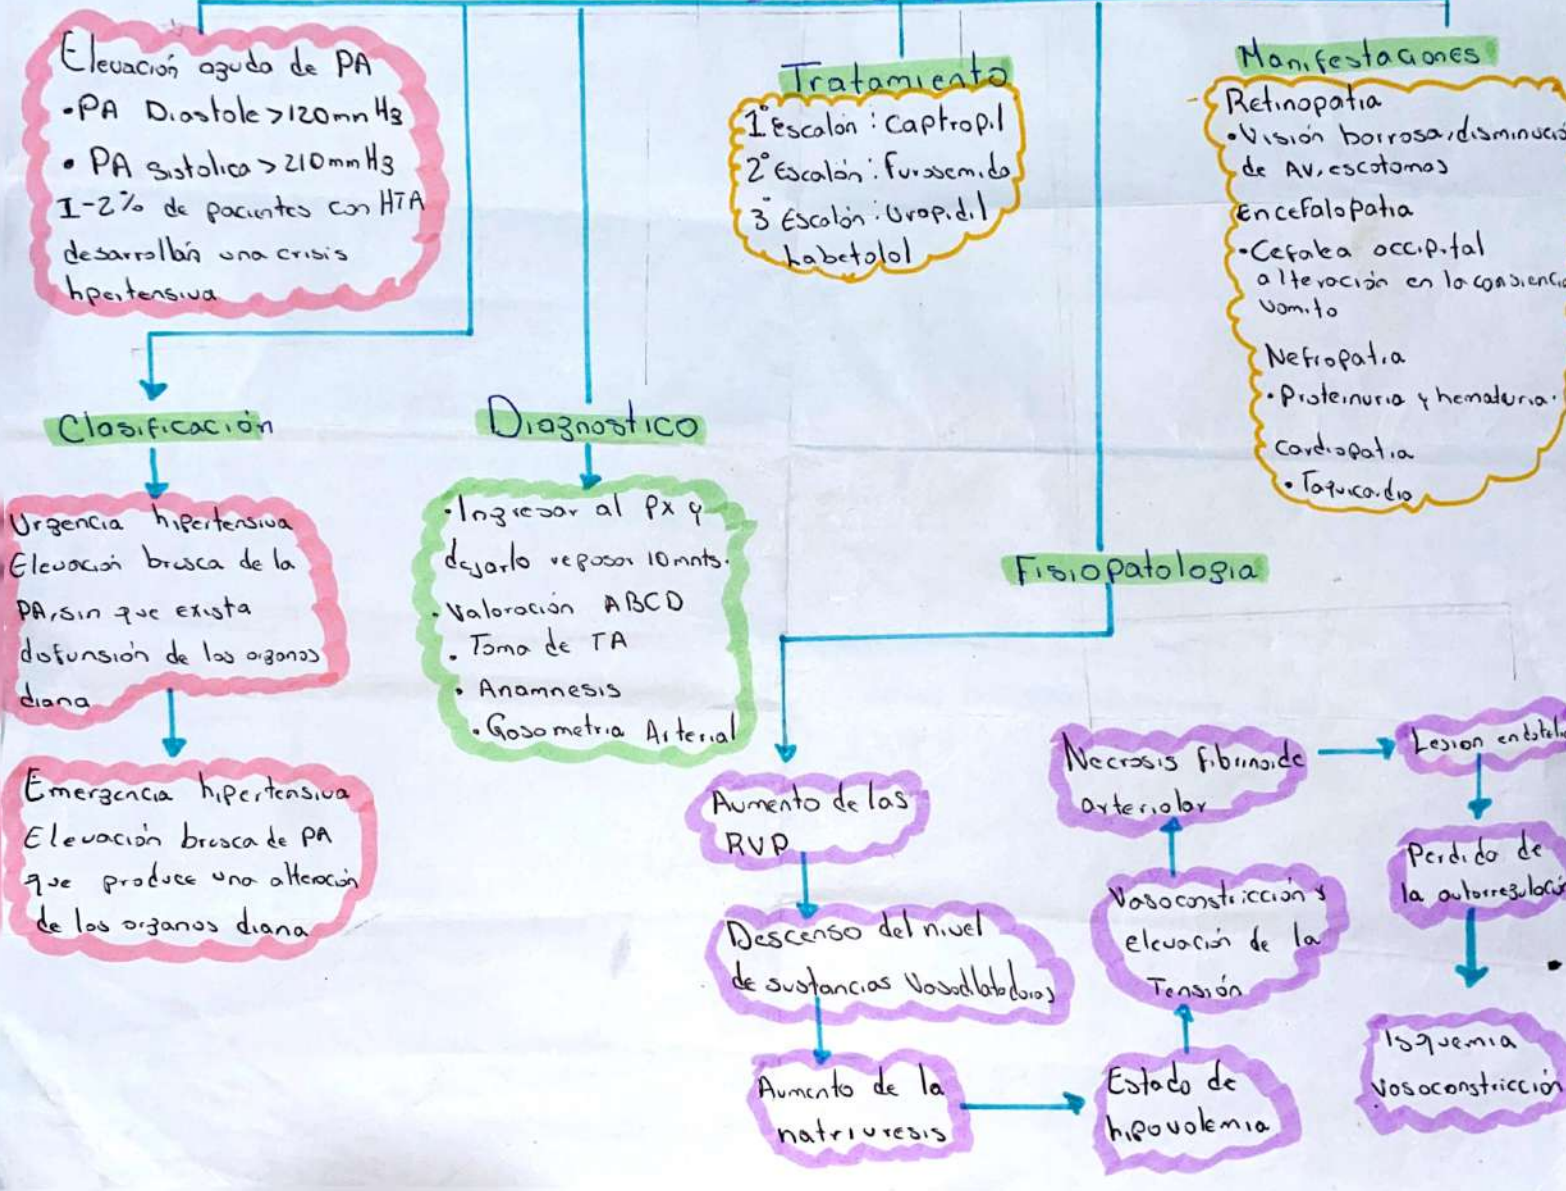 Elevación aguda de PA
• PA Diastole > 120 mn Hg
• PA sistolica > 210 mm Hg
1-2% de pacientes con HTA
desarrollan una crisis
hpertensiva
Clasificación
Urgencia hipertensiva
Elevación brusca de la
PA, sin que exista
disfunsión de los organos
diana
Emergencia hipertensiva
Elevación brusca de PA
que produce una alteración
de los organos diana
Diagnostico
• Ingresar al Px y
dejarlo reposar 10 mnts.
• Valoración ABCD
• Toma de TA
• Anamnesis
• Gasometria Arterial
Tratamiento
1° Escalón: Captropil
2° Escalón: Furosemida
3° Escalón: Urapidil
Labetolol
Manifestaciones
Retinopatia
• Visión borrosa, disminució
de AV, escotomas
Encefalopatia
• Cefalea occipital
alteración en la consiencia
vomito
Nefropatia
• Proteinuria y hematuria.
Cardiopatia
• Taquicardia
Fisiopatologia
Aumento de las
RVP
Descenso del nivel
de sustancias Vasodilatadoras
Aumento de la
natriuresis
Estado de
hipovolemia
Vasoconstricción y
elevación de la
Tensión
Necrosis fibrinoide
arteriolar
Lesion endoteli
Perdida de
la autorregulación
Isquemia
vasoconstricción